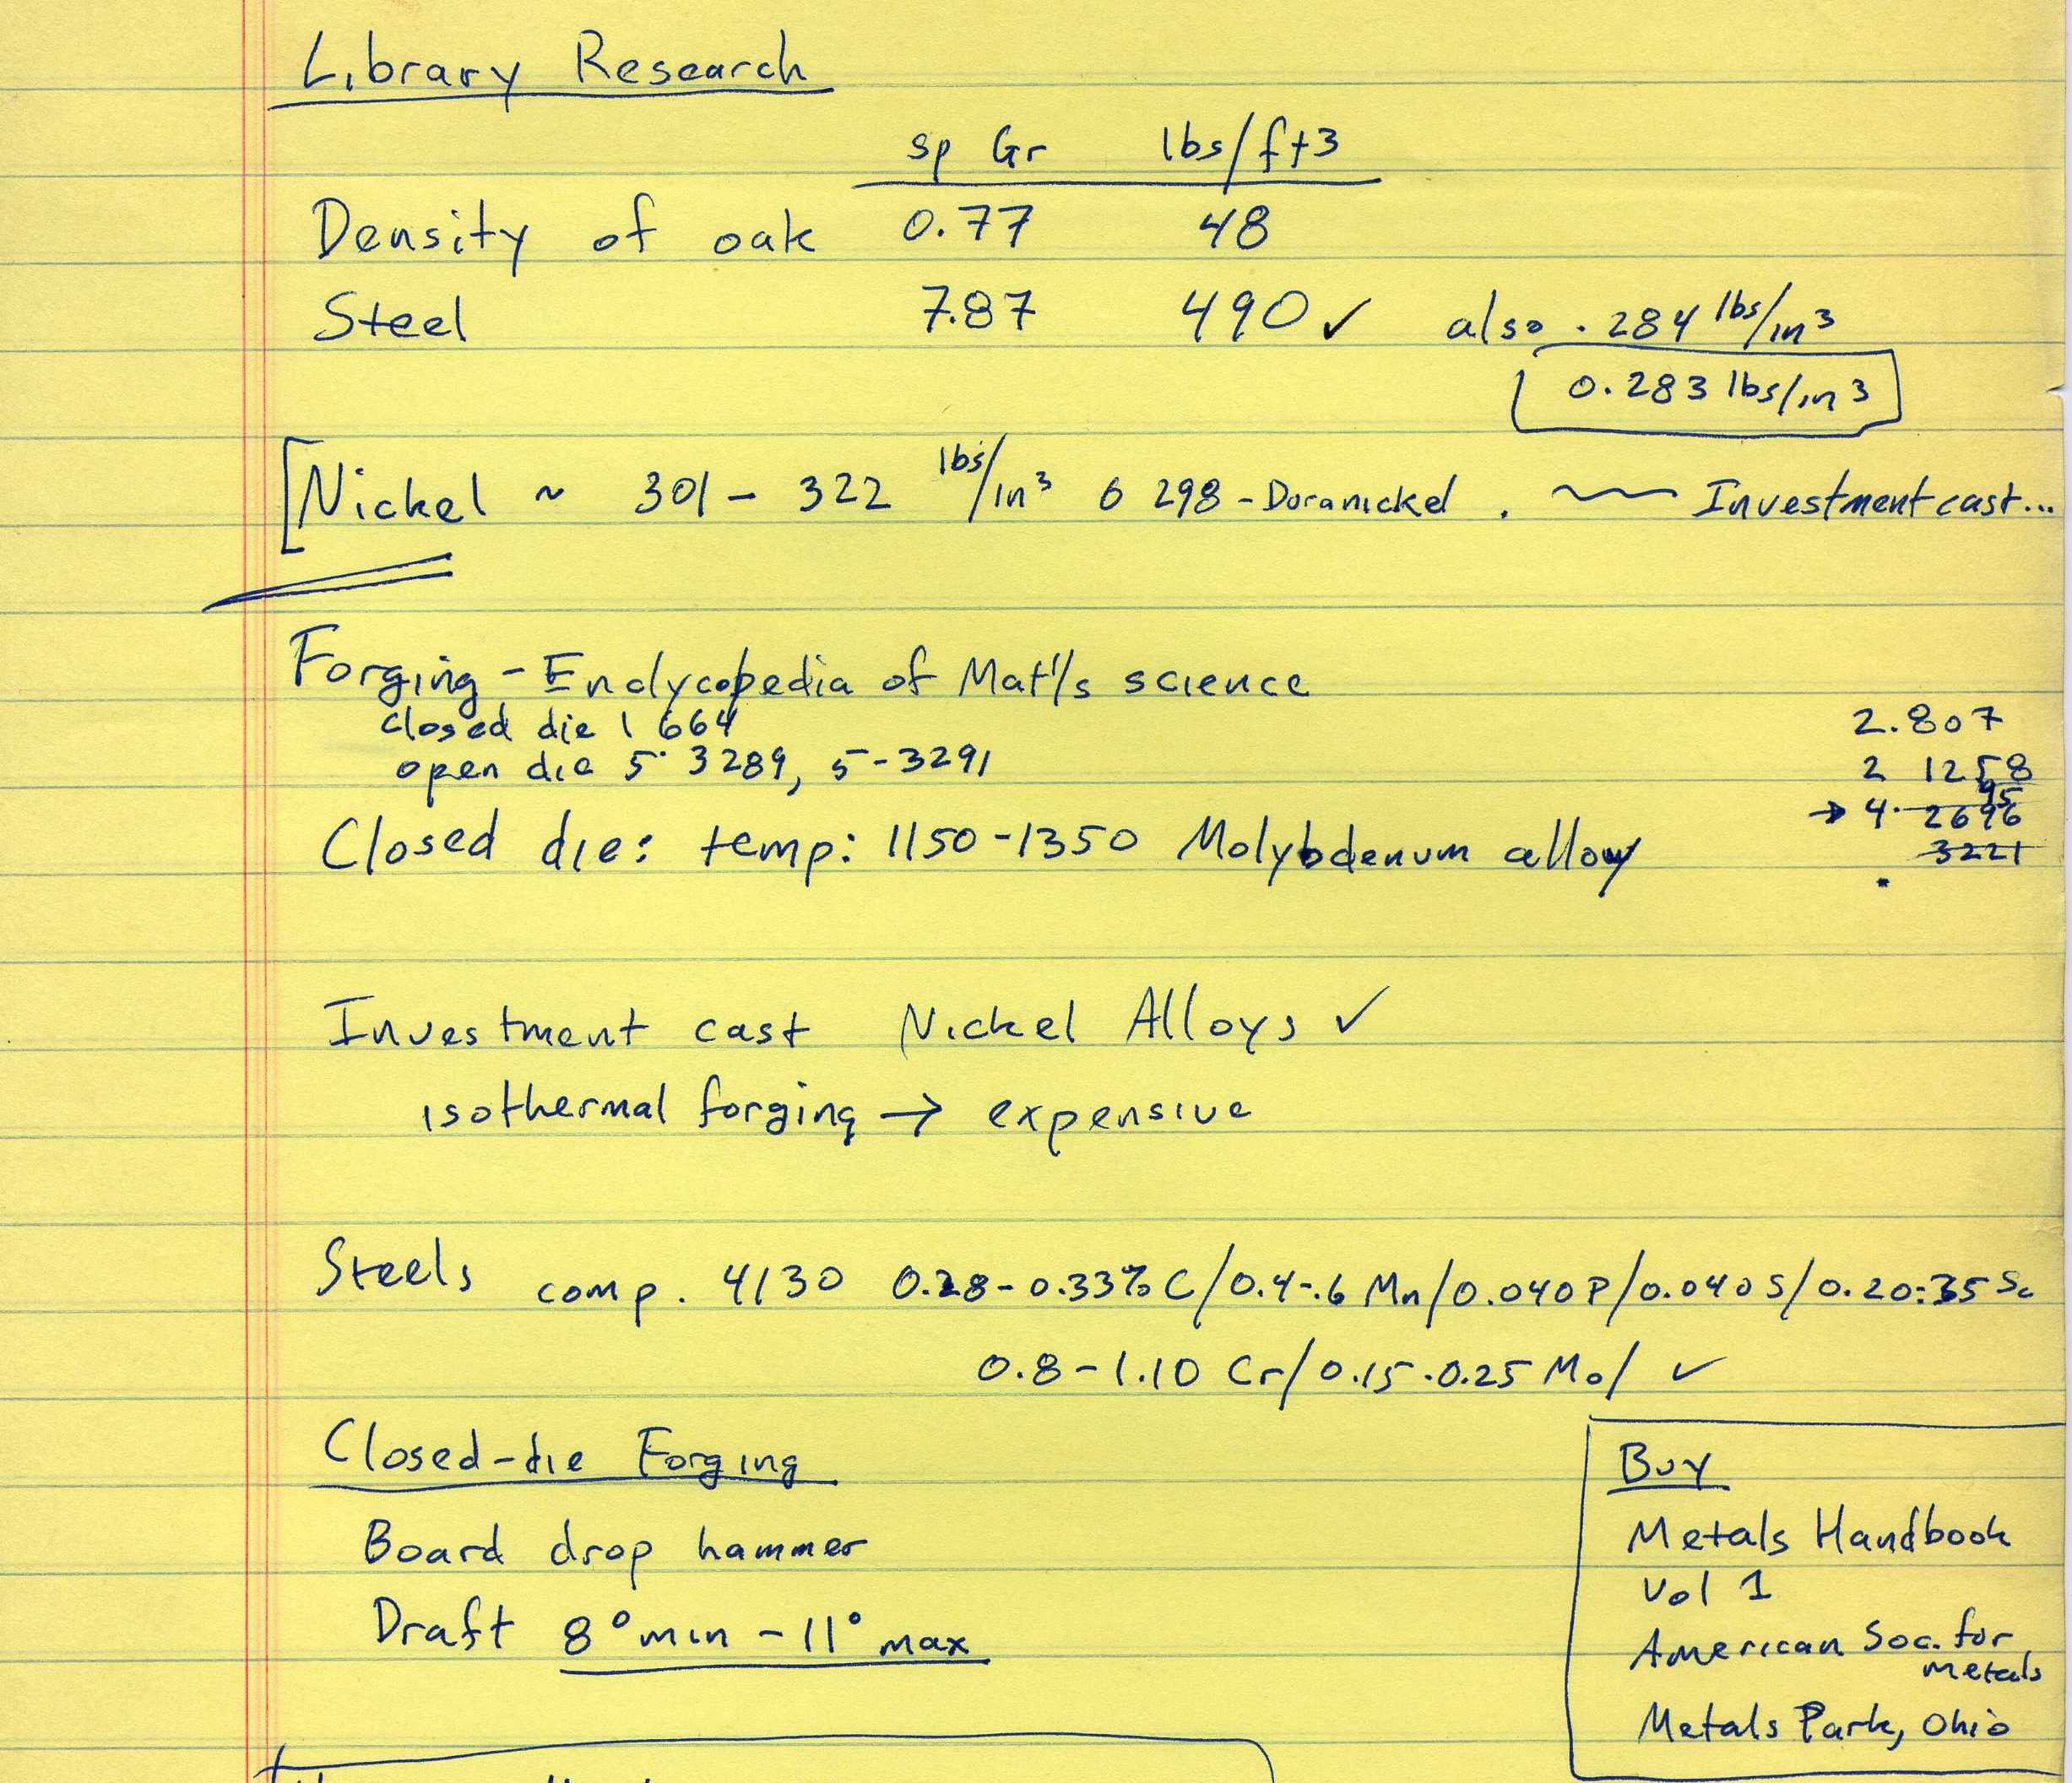 Library Research
sp Gr lbs/ft3
Density of oak 0.77 48
Steel 7.87 490✓ also .284 lbs/in3
0.283 lbs/in3
[Nickel ~ 301 - 322 lbs/in3 298 - Duranickel . ~ Investment cast...
Forging - Endycopedia of Mat'ls science
closed die 1 664
open die 5 3289, 5-3291
2.807
2 1258
→ 4. 2695
3221
Closed die: temp: 1150-1350 Molybdenum alloy
Investment cast Nickel Alloys ✓
isothermal forging → expensive
Steels comp. 4130 0.28-0.33% C/0.4-.6 Mn/0.040 P/0.040 S/0.20-.35
0.8-1.10 Cr/0.15-0.25 Mo/ ✓
Closed-die Forging
Board drop hammer
Draft 8° min - 11° max
Buy
Metals Handbook
Vol 1
American Soc. for
metals
Metals Park, Ohio